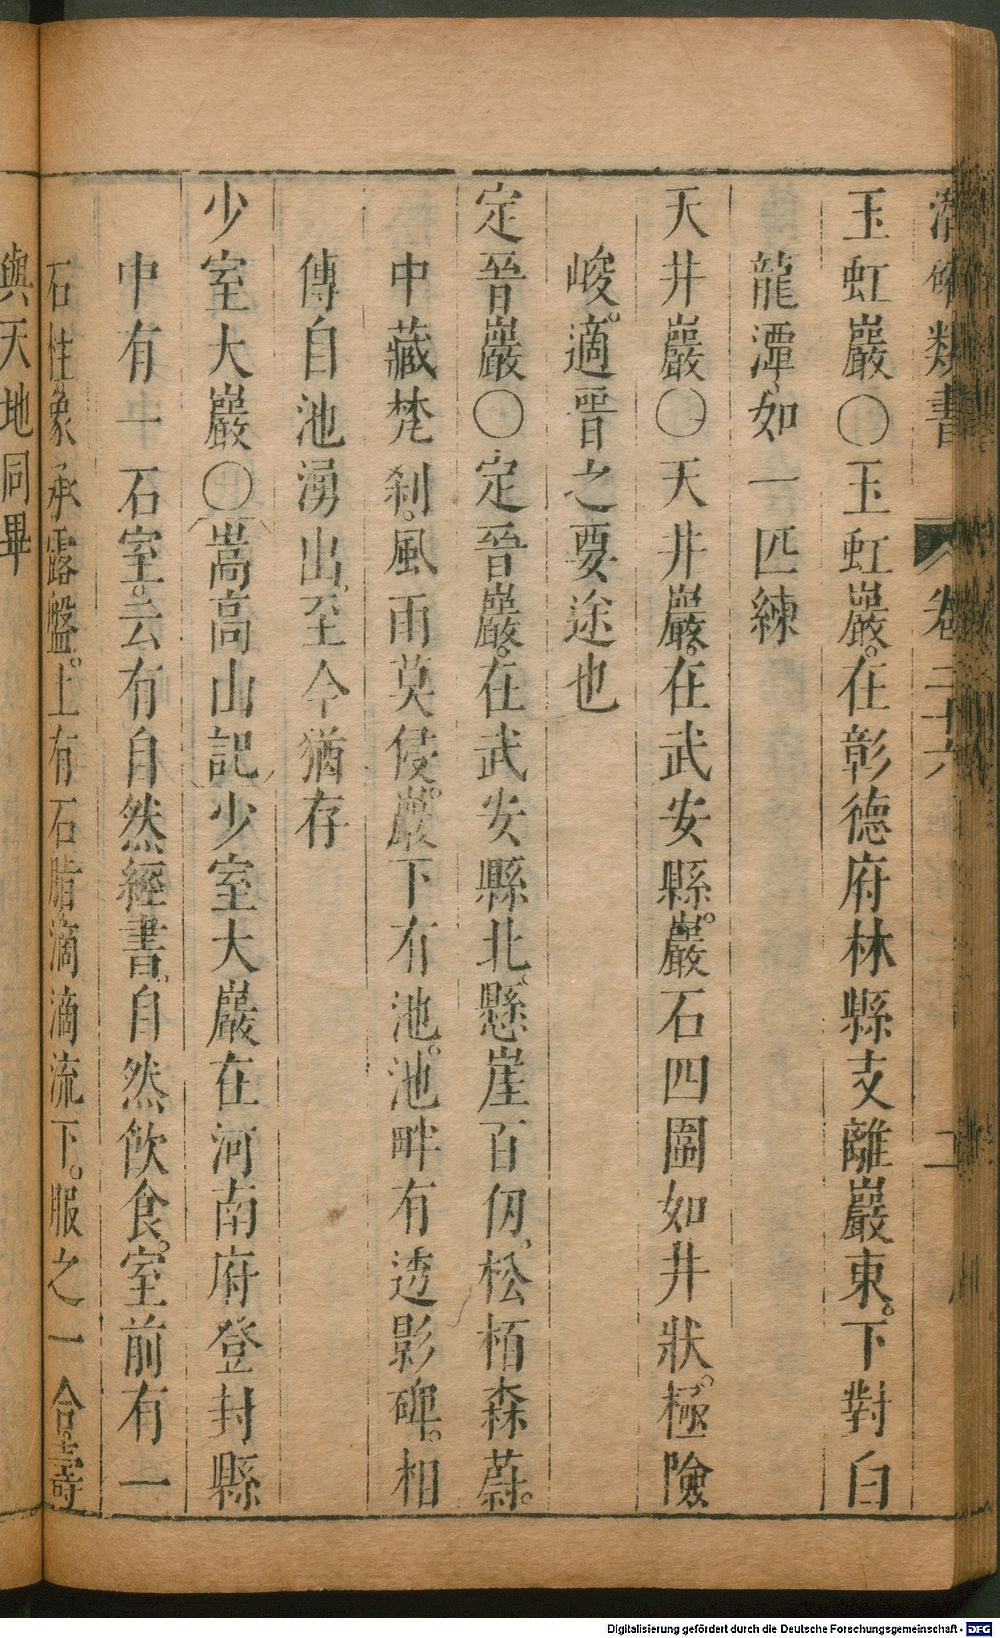 潛確類書 卷二十六 二
玉虹巖〇玉虹巖。在彰德府林縣支離巖東。下對白
龍潭、如一匹練
天井巖〇天井巖。在武安縣。巖石四圍如井狀。極險
峻。適晉之要途也
定晉巖〇定晉巖。在武安縣北、懸崖百仞。松栢森蔚。
中藏梵剎。風雨莫侵。巖下有池。池畔有透影碑。相
傳自池湧出。至今猶存
少室大巖〇嵩高山記少室大巖在河南府登封縣
中有一石室。云有自然經書、自然飲食。室前有一
石柱、象承露盤。上有石脂、滴滴流下。服之一合。壽
與天地同畢
Digitalisierung gefördert durch die Deutsche Forschungsgemeinschaft - DFG